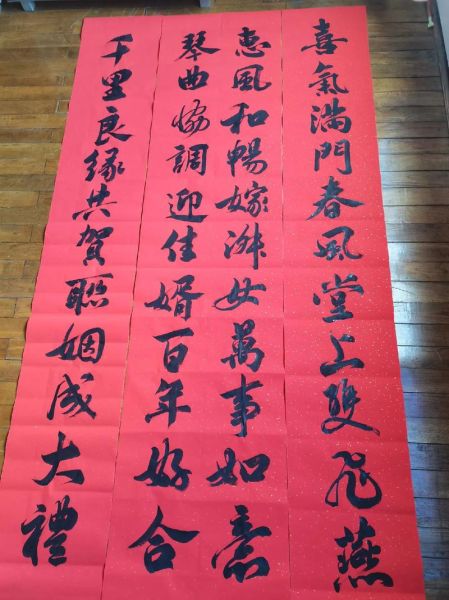 喜氣滿門春風堂上雙飛燕
惠風和暢嫁淑女萬事如意
琴曲協調迎佳婿百年好合
千里良緣共賀聯姻成大禮